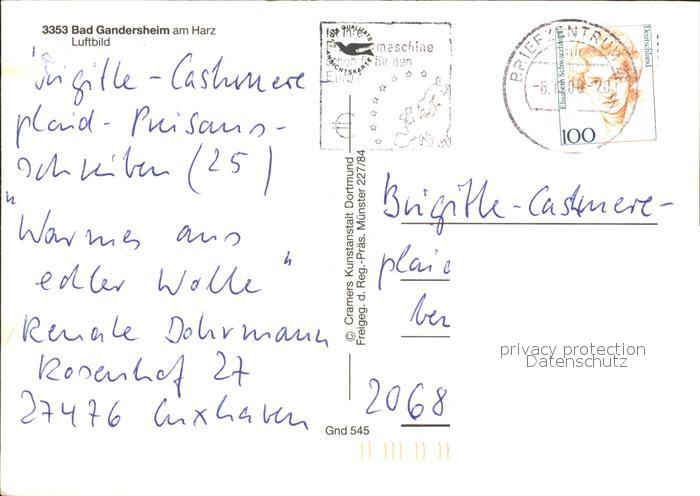 3353 Bad Gandersheim am Harz
Luftbild
Brigitte - Cashmere
plaid - Preisaus-
schreiben (25)
"Warmes aus
edler Wolle"
Renate Dohrmann
Rosenhof 27
27476 Cuxhaven
© Cramers Kunstanstalt Dortmund
Freigeg. d. Reg.-Präs. Münster 227/84
Gnd 545
QUALITÄTS
ANSICHTSKARTE
Ist Ihre
maschine
für den
Euro
BRIEFZENTRUM
Deutschland
Elisabeth Schwarzhaupt
100
Brigitte-Cashmere-
plaid
ber
2068
privacy protection
Datenschutz